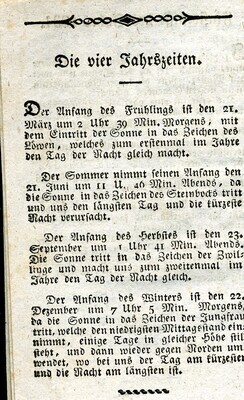 Die vier Jahrszeiten.
Der Anfang des Frühlings ist den 21.
März um 2 Uhr 39 Min. Morgens, mit
dem Eintritt der Sonne in das Zeichen des
Löwen, welches zum erstenmal im Jahre
den Tag der Nacht gleich macht.
Der Sommer nimmt seinen Anfang den
21. Juni um 11 U. 46 Min. Abends, da
die Sonne in das Zeichen des Steinbocks tritt
und uns den längsten Tag und die kürzeste
Nacht verursacht.
Der Anfang des Herbstes ist den 23.
September um 1 Uhr 41 Min. Abends.
Die Sonne tritt in das Zeichen der Zwil-
linge und macht uns zum zweitenmal im
Jahre den Tag der Nacht gleich.
Der Anfang des Winters ist den 22.
Dezember um 7 Uhr 5 Min. Morgens,
da die Sonne in das Zeichen der Jungfrau
tritt, welche den niedrigsten Mittagsstand ein-
nimmt, einige Tage in gleicher Höhe still
steht, und dann wieder gegen Norden um
wendet, wo bei uns der Tag am kürzesten
und die Nacht am längsten ist.